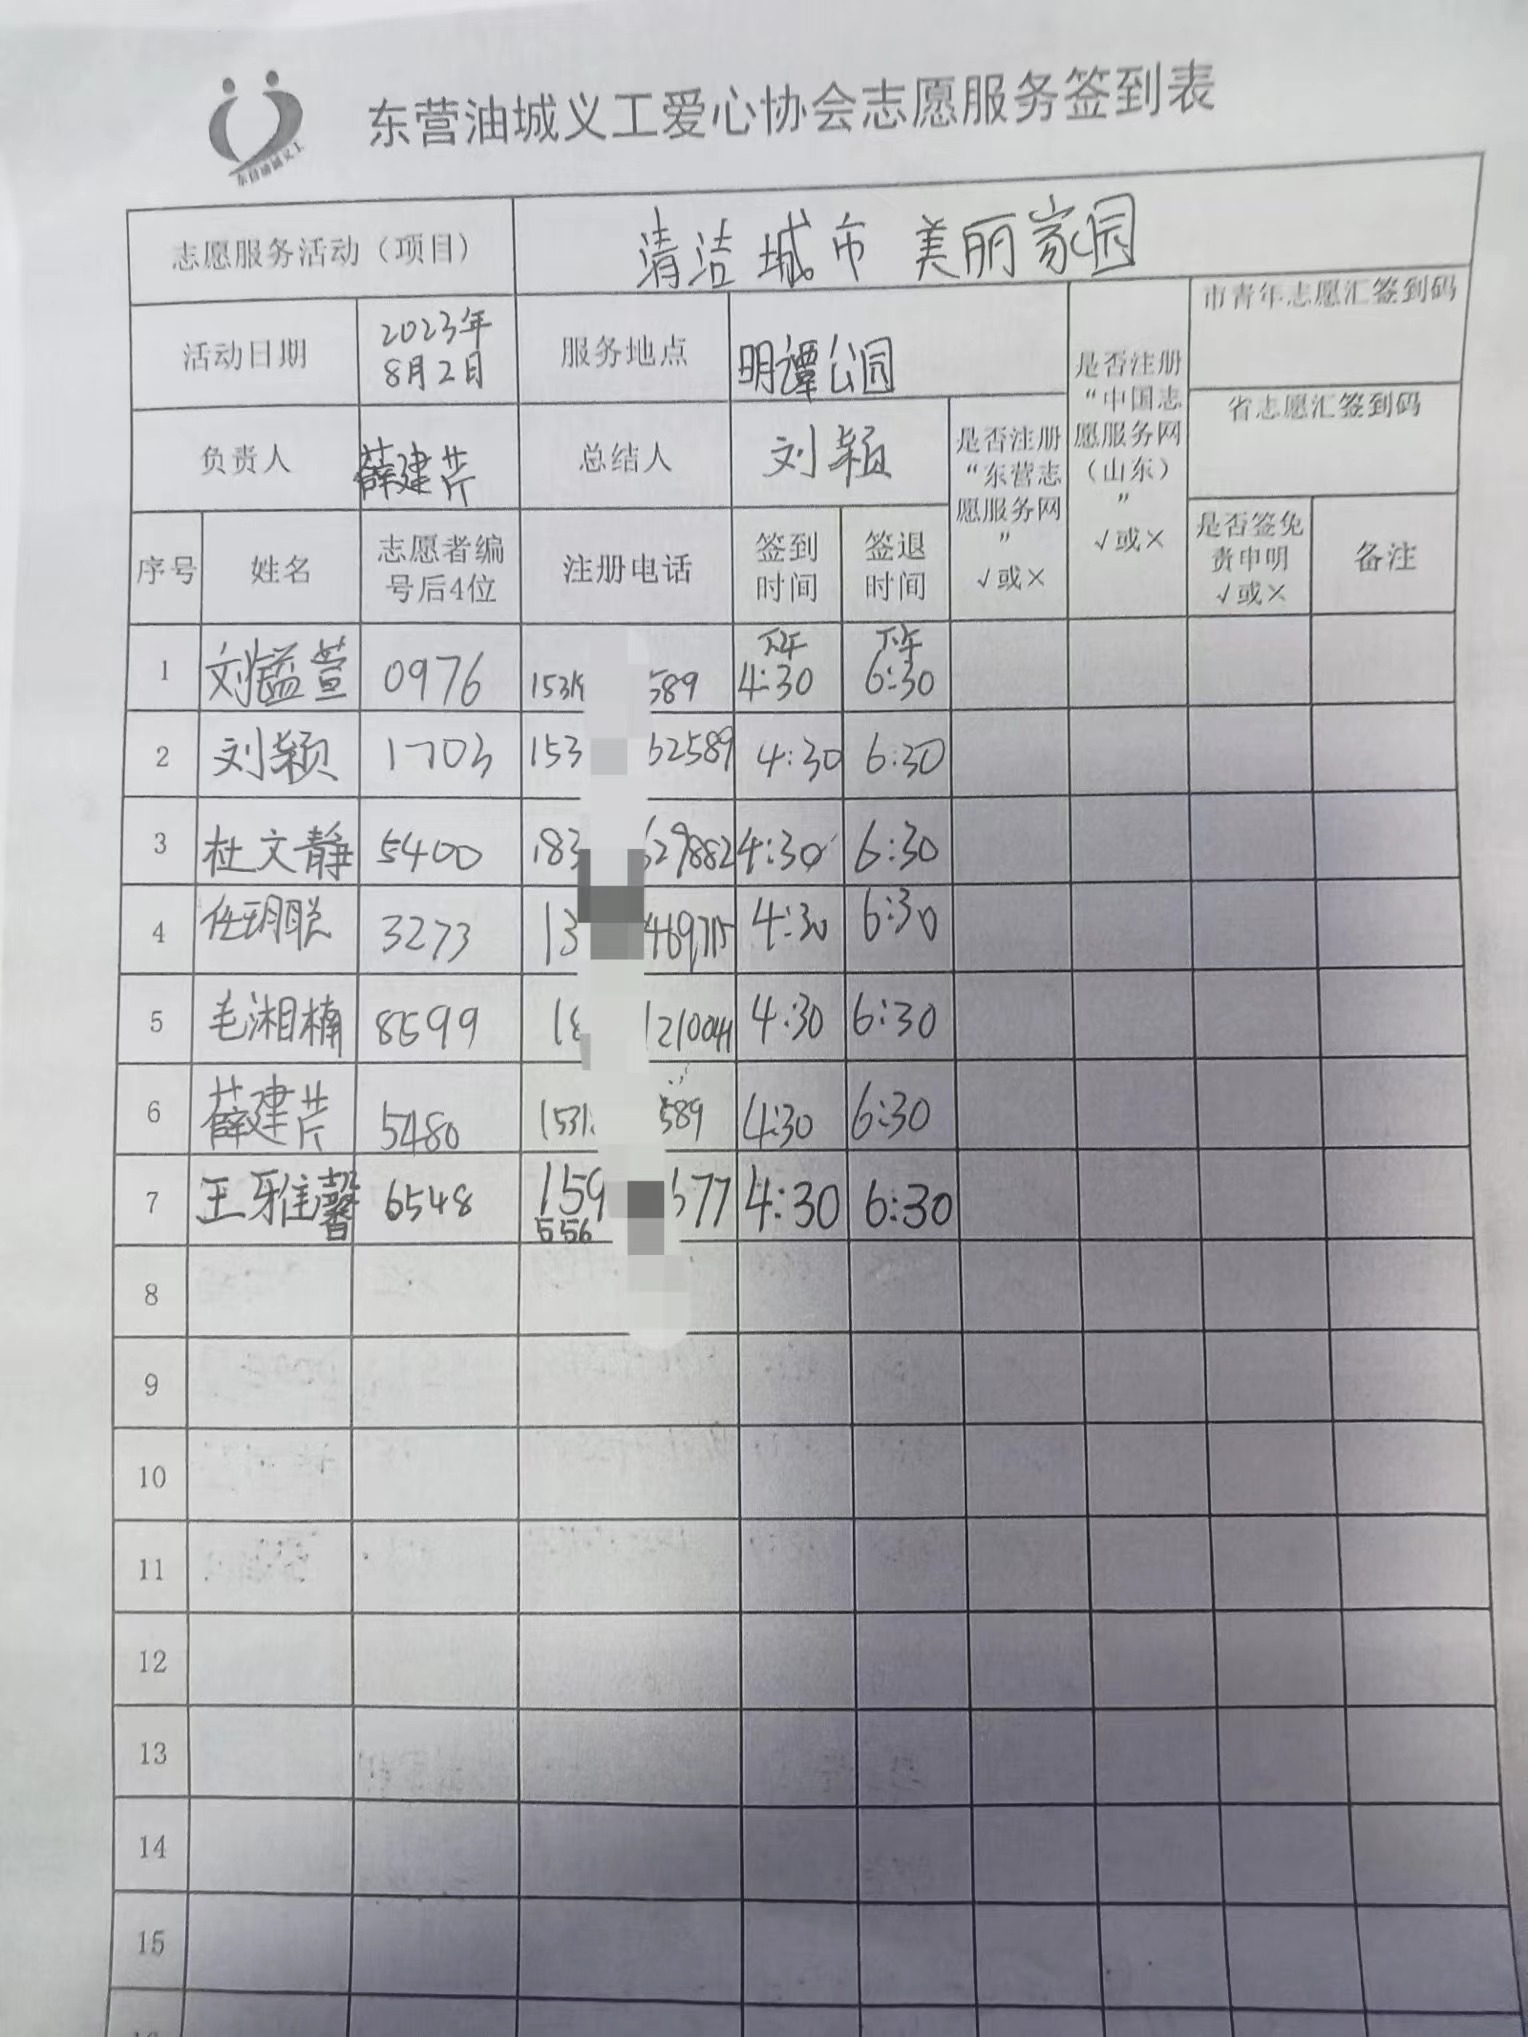 东营油城义工
东营油城义工爱心协会志愿服务签到表
志愿服务活动（项目） 清洁城市 美丽家园
活动日期 2023年8月2日 服务地点 明谭公园
是否注册“中国志愿服务网（山东）” √或×
市青年志愿汇签到码
省志愿汇签到码
负责人 薛建芹 总结人 刘颖
是否注册“东营志愿服务网” √或×
序号 姓名 志愿者编号后4位 注册电话 签到时间 签退时间 是否签免责申明√或× 备注
1 刘镒萱 0976 1531 589 下午4:30 下午6:30
2 刘颖 1703 153 62589 4:30 6:30
3 杜文静 5400 183 629882 4:30 6:30
4 任玥聪 3273 13 4:30 6:30
5 毛湘楠 8599 18 4:30 6:30
6 薛建芹 5480 1531 589 4:30 6:30
7 王雅馨 6548 159 577 4:30 6:30
556
8
9
10
11
12
13
14
15